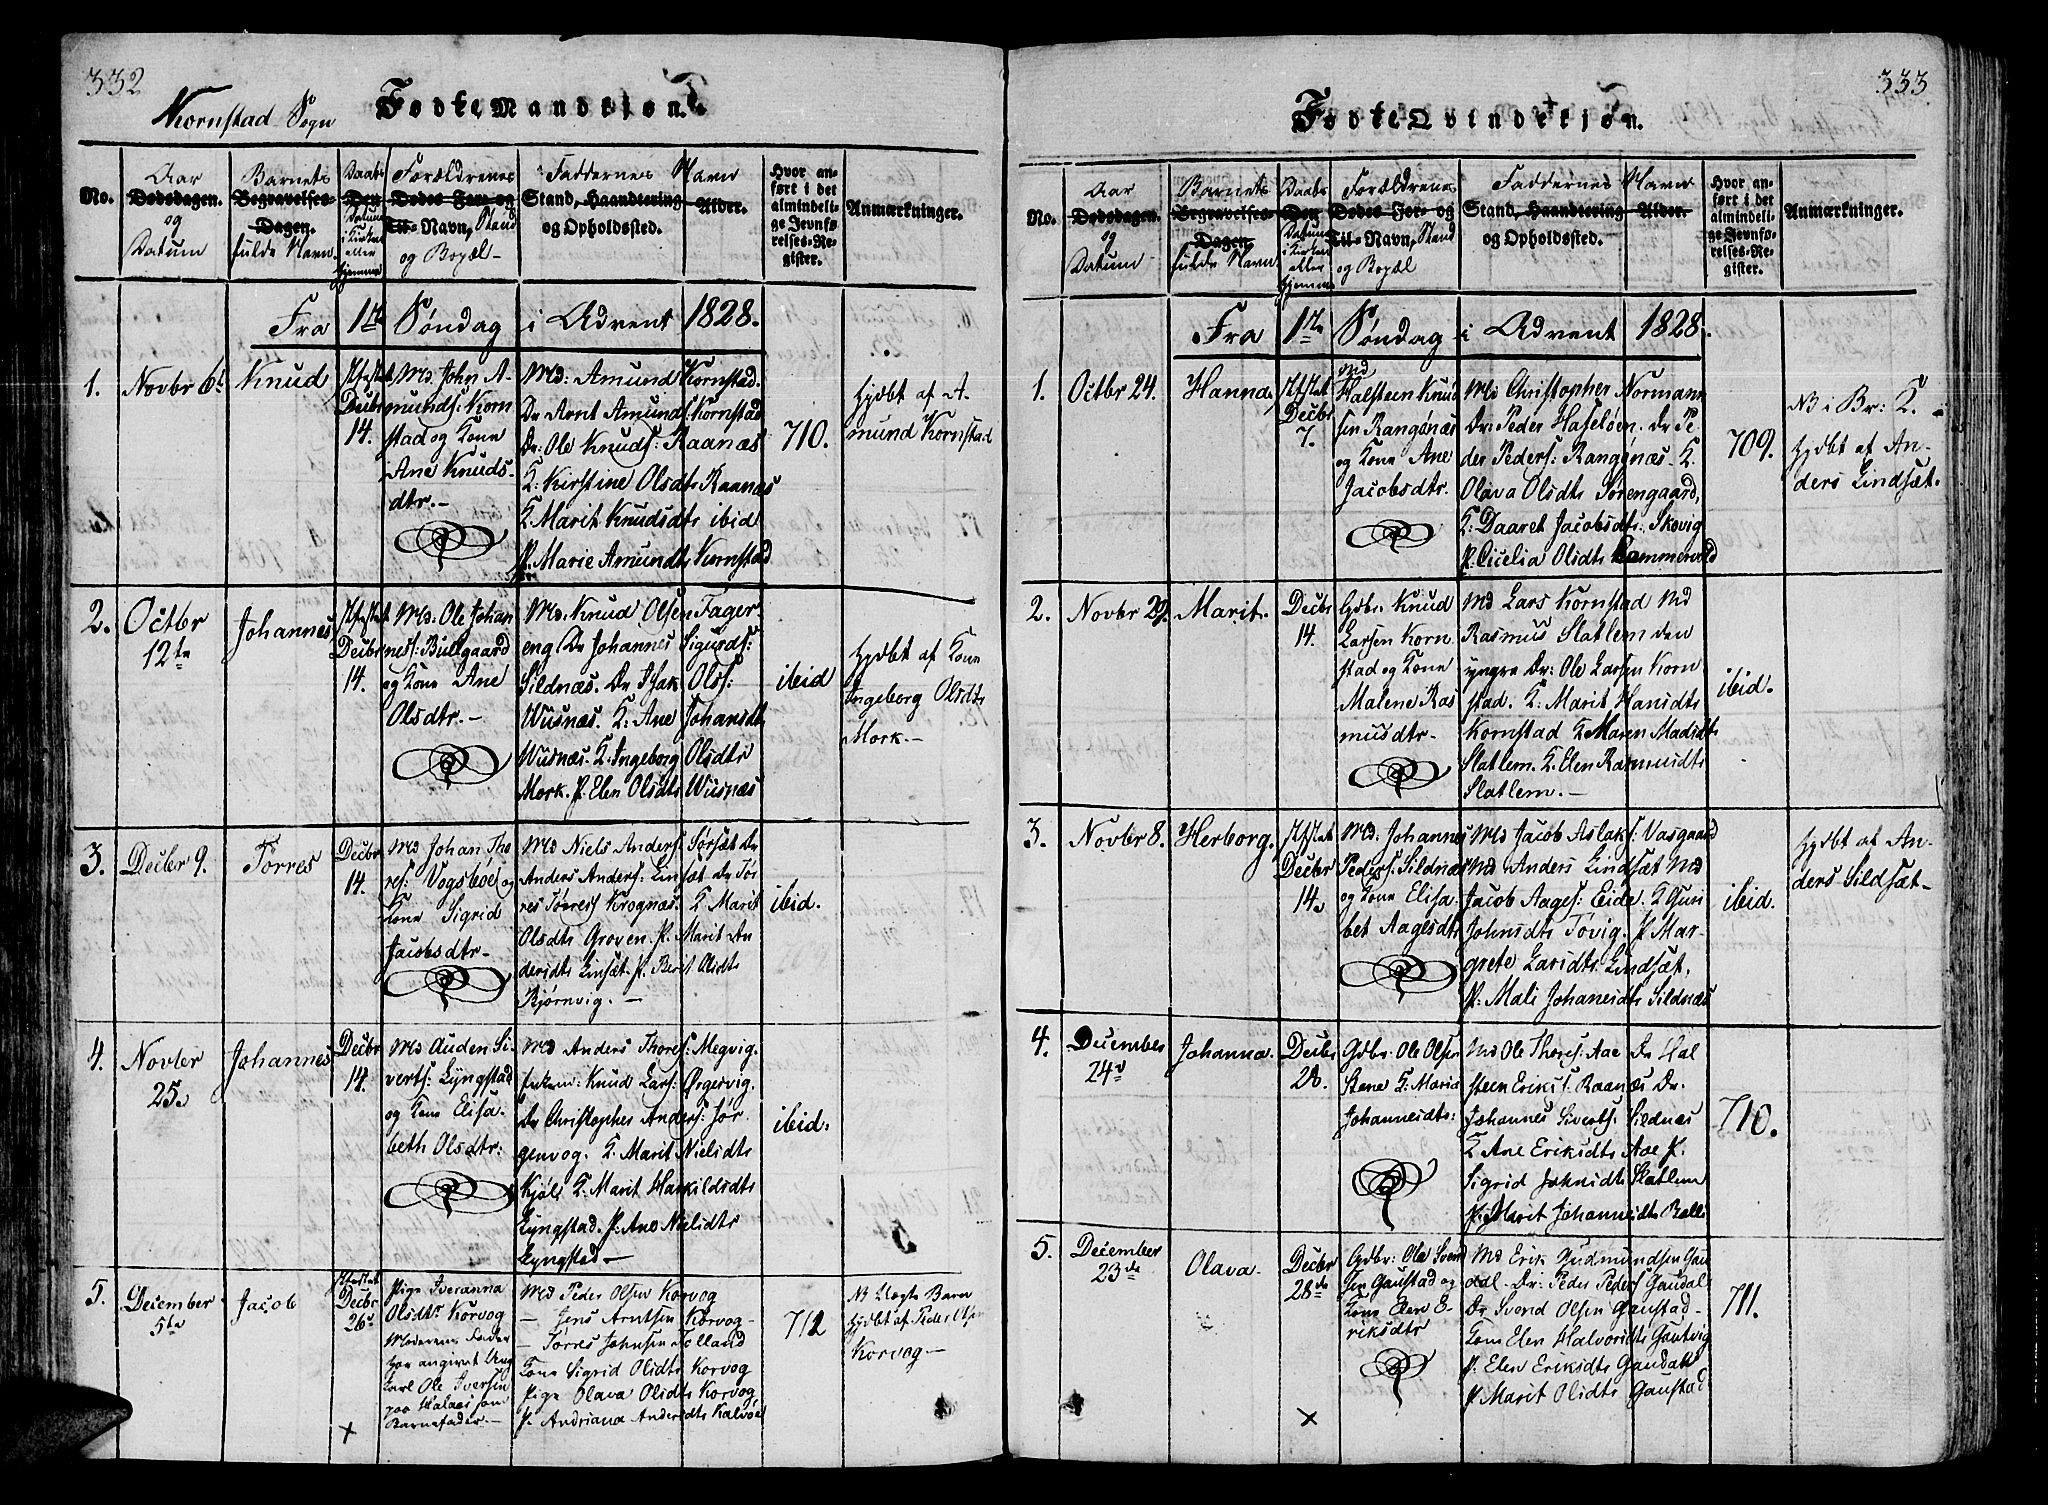 332
Kornstad Sogn
Fødte Mandkjøn.
No.
Aar
Dødsdagen.
og
Datum
Barnets
Begravelses-
Dagen.
fulde Navn
Daabs
Den
Datum
i Kirken
eller
hjemme
Forældrenes
Dødes For- og
Til-Navn, Stand
og Bopæl-
Faddernes Navn
Stand, Haandtering Alder.
og Opholdssted.
Hvor an-
ført i det
almindeli-
ge Jevnfø-
relses-Re-
gister.
Anmærkninger.
Fra 1ste Søndag i Advent 1828.
1.
Novbr 6te
Knud
Decbr
14.
Md. John A-
munds: Korn
stad og Kone
Ane Knuds-
dtr.-
Md: Amund Kornstad.
Dr Arnt Amunds: Kornstad
Dr: Ole Knuds: Raanæs
K: Kirstine Olsdtr Raanæs
K. Marit Knudsdtr ibid
P. Marie Amundsdtr Kornstad
710.
Hjdbt af A-
mund Kornstad
2.
Octbr
12te
Johannes
Decbr
14.
Md. Ole Johan
nes: Bullgaard
og Kone Ane
Olsdtr.-
Md. Knud Olsen Fager
eng Dr Johannes Siguds:
Sildnæs. Dr Isak Ols:
Wusnæs. K: Ane Johansdtr
Wusnæs. K. Ingeborg Olsdtr
Mork. P. Elen Olsdtr Wusnæs
ibid
Hjdbt af Kone
Ingeborg Olsdtr
Mork.-
3.
Decbr 9.
Torres
Decbr
14.
Md Johan Tho
res: Vogsbøe og
Kone Sigrid
Jacobsdtr.
Md Niels Anders: Sørsæt Dr
Anders Anders: Linsæt Dr Tør
res Tørres: Krognæs. K Marit
Olsdtr Groven P. Marit An
dersdtr Linsæt. P. Berit Olsdtr
Bjørnvig.-
ibid.
4.
Novbr
25.
Johannes
Decbr
14.
Md Auden Si-
verts: Lyngstad
og Kone Elisa-
beth Olsdtr:
Md Anders Thores: Megvig.
Knud Lars: Ørgervig.
Dr Christopher Anders: Jør
genvog. K. Marit Nielsdtr
Kjøls K. Marit Harkildsdtr
Lyngstad. P: Ane Nielsdtr
Lyngstad-
ibid.
5
5.
December
5te
Jacob
Decbr
26
Pige Iveranna
Olsdtr Korvog
Moderen
har angivet Ung
karl Ole Iversen
paa som
Barnefader-
Md Peder Olsen Korvog
- Jens Arntsen Korvog-
- Torres Johnsen Tolland
Kone Sigrid Olsdtr Korvog
Pige Olava Olsdtr Korvog
P. Andriana Andersdtr Kalvøe
712
N Uægte Barn
Hjdbt af Peder Olsen
Korvog-
333
Fødte Qvindekjøn.
No.
Aar
Dødsdagen.
og
Datum-
Barnets
Begravelses-
Dagen
fulde Navn
Daabs
Den
Datum
i Kirken
eller
hjemme
Forældrenes
Dødes For- og
Til-Navn, Stand
og Bopæl
Faddernes Navn
Stand, Haandtering Alder.
og Opholdssted.
Hvor an-
ført i det
almindeli-
ge Jevnfø-
relses-Re-
gister.
Anmærkninger.
Fra 1ste Søndag i Advent 1828.
1.
Octbr 24.
Hanna,
Decbr
7.
Md
Halsteen Knud
sen Rangønæs
og Kone Ane
Jacobsdtr.
Md Christopher Normann
Dr: Peder Haseløen. Dr Pe-
der Peders: Rangønæs. K.
Olava Olsdtr Sørengaard,
K: Daaret Jacobsdtr: Skovig
P. Cicelia Olsdtr Hammervold
709.
NB i Br: K.
Hjdbt af An-
ders Lindsæt.
2.
Novbr 29.
Marit.
Decbr
14.
Gdbr. Knud
Larsen Korn
stad og Kone
Malene Ras
musdtr.
Md Lars Kornstad Md
Rasmus Slatlem den
yngre Dr: Ole Larsen Korn
stad. K. Marit Hansdtr
Kornstad K Maren Madsdtr
Slatlem. K. Elen Rasmusdtr
Slatlem.-
ibid.
3.
Novbr 8.
Herborg.
Decbr
14.
Md: Johannes
Peders: Sildnæs
og Kone Elisa
bet Aagesdtr
Md Jacob Aslaks: Vasgaard
Md Anders Lindsæt Md
Jacob Aages: Eide. K Guri
Johnsdtr Tøvig. P. Mar-
grete Larsdtr Lindsæt.
P. Mali Johansdtr Sildnæs
ibid.
Hjdbt af An-
ders Sildsæt-
4.
December
24de
Johanna.
Decbr
28.
Gdbr: Ole Olsen
Stene K. Maria
Johannesdtr:
Md Ole Thores: Aae Dr Hal
steen Eriks: Raanæs Dr.
Johannes Siverts: Sildnæs
K Ane Eriksdtr Aae P.
Sigrid Johnsdtr Slatlem
P. Marit Johannesdtr Balli
710.
5.
December
23de
Olava-
Decbr
28de
Gdbr: Ola Svend
sen Gaustad og
Kone Elen E-
riksdtr
Md Erik Gudmundsen Gau
dal. Dr: Peder Peders Gaudal
Dr Svend Olsen Gaustad-
Kone Elen Halvorsdtr Gautvig
P. Elen Eriksdtr Gaudahl
P. Marit Olsdtr Gaustad
711.